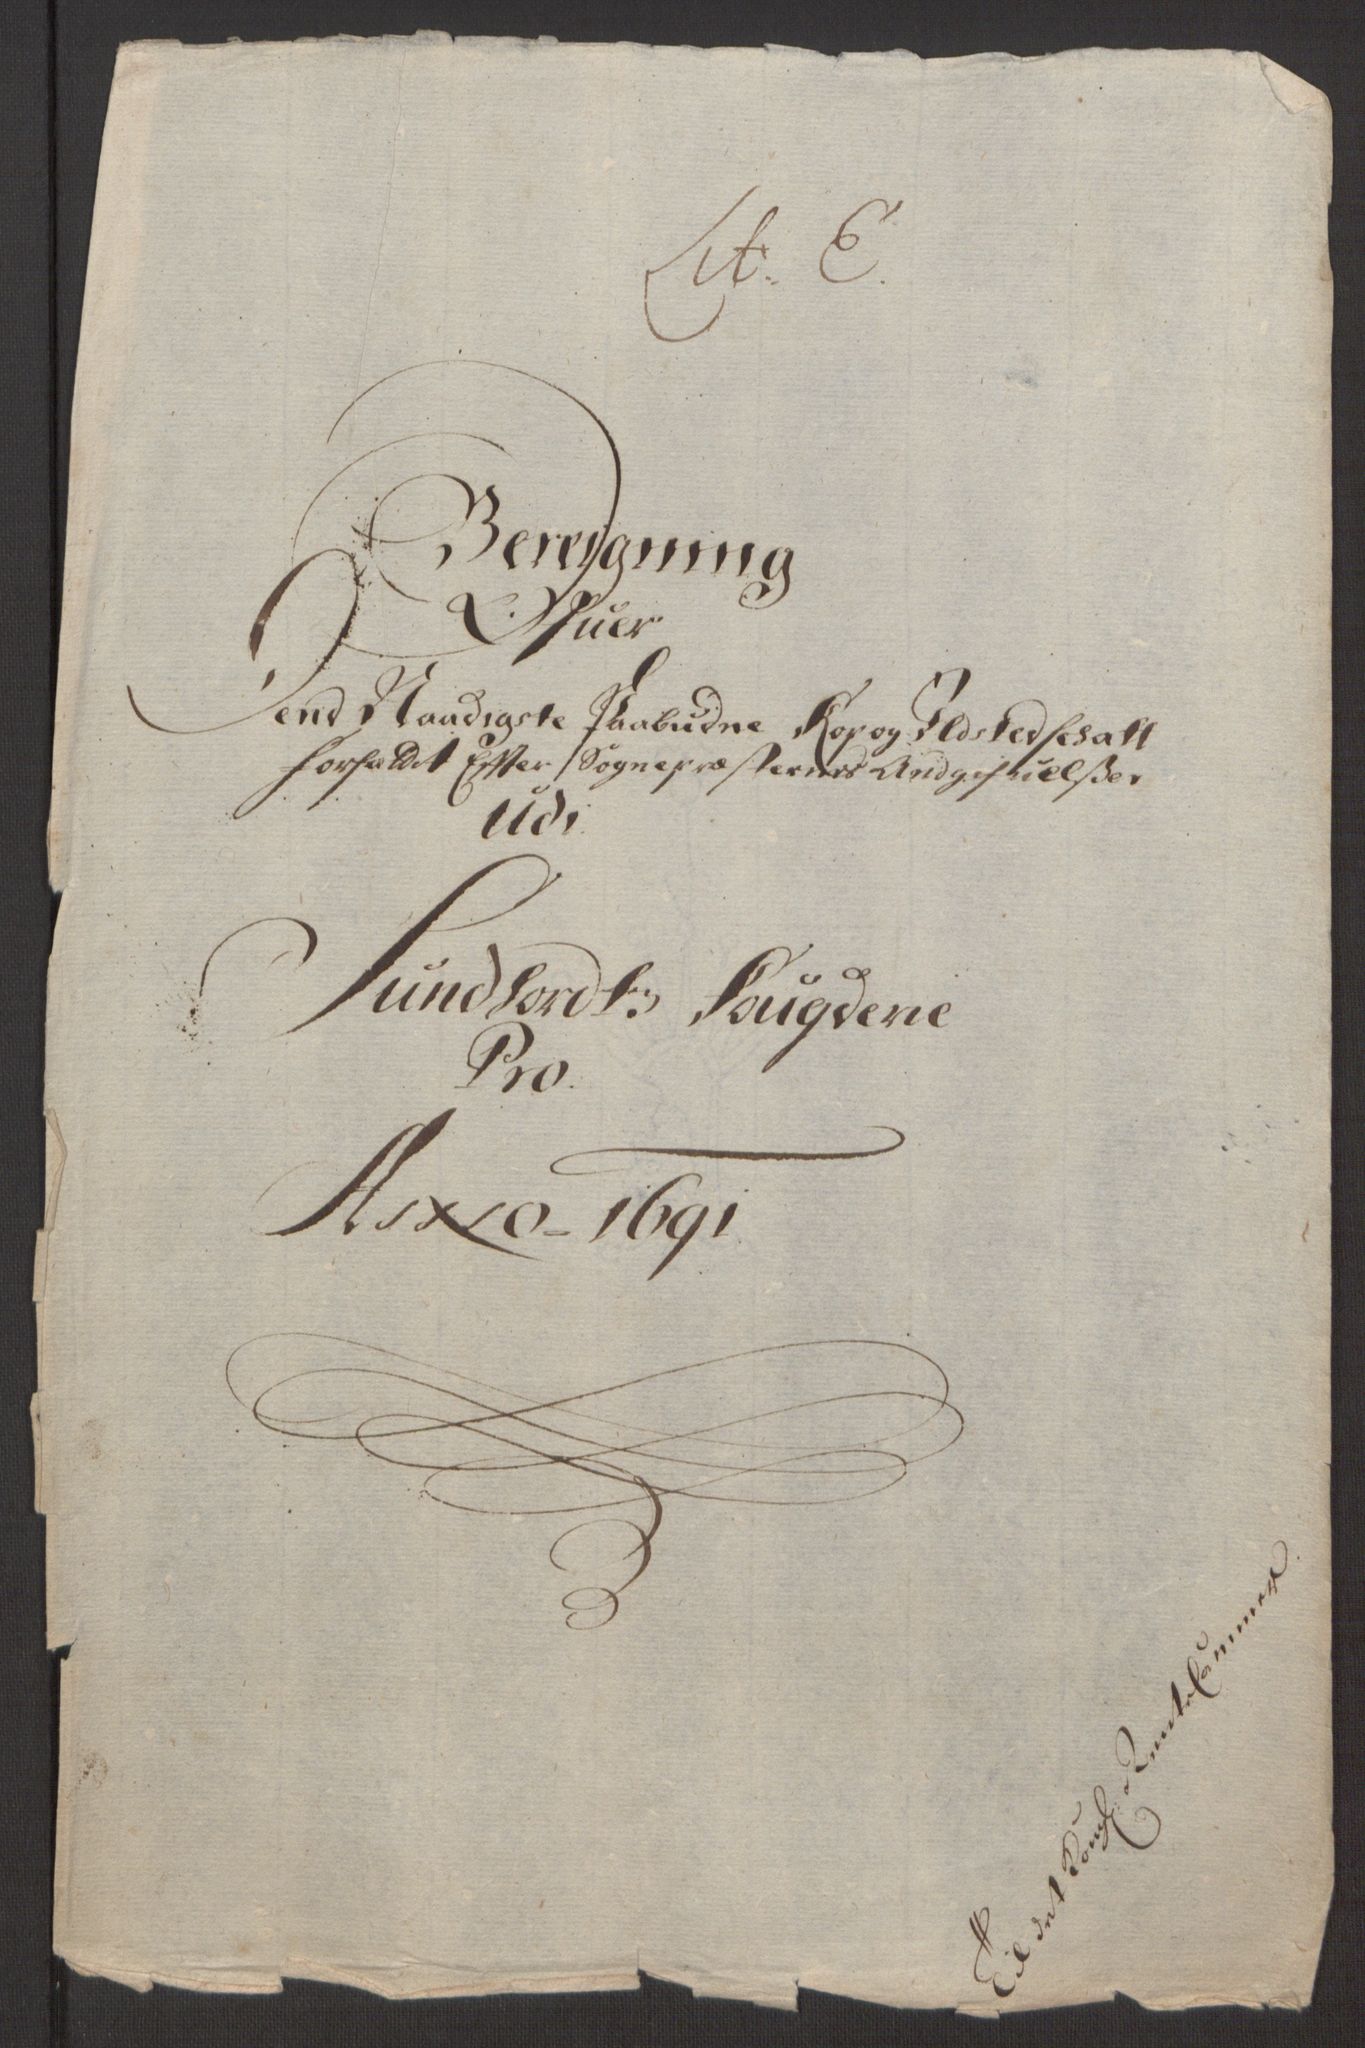 Lit. E.
Beregning
Offuer
Dend Naadigste Paabudne Kop og Ildstedschatt
forfattet Effter Sognepræsternes Andgifuelsser
Udi
Sundfords Fougderie
Pro.
Anno 1691
Til det Kongl: Rentekammer